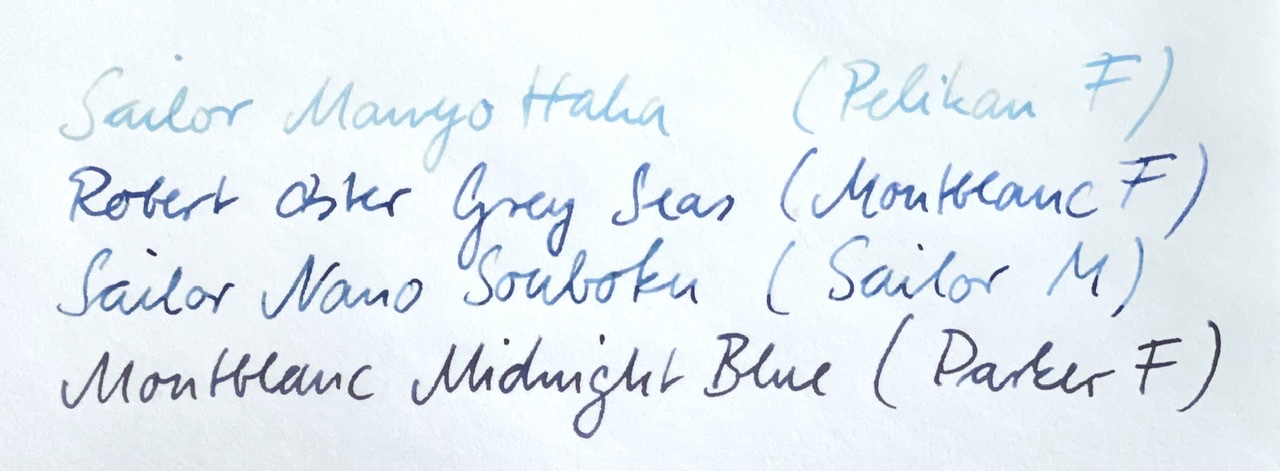 Sailor Manyo Haha (Pelikan F)
Robert Oster Grey Seas (Montblanc F)
Sailor Nano Souboku (Sailor M)
Montblanc Midnight Blue (Parker F)